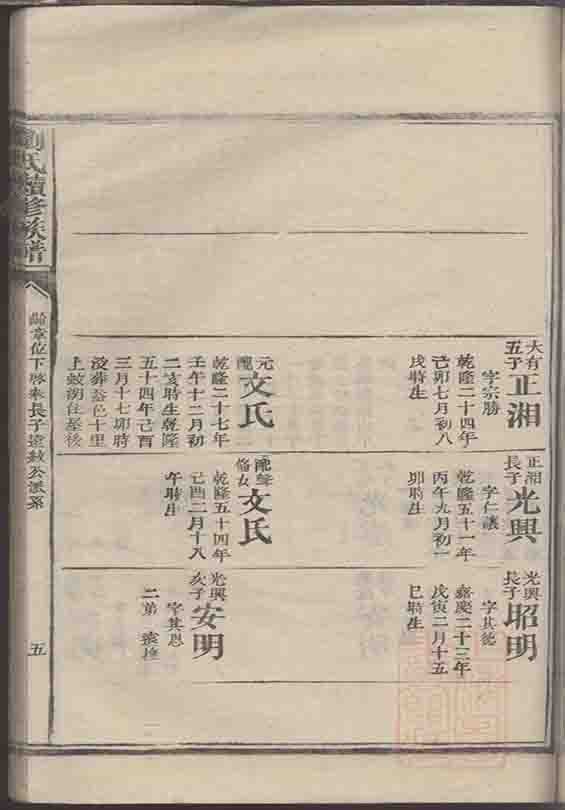 大有
五子
正湘
字宗勝
乾隆二十四年
己卯七月初八
戌時生
元
配
文氏
乾隆二十七年
壬午十二月初
二亥時生乾隆
五十四年己酉
三月十七卯時
沒葬益邑十里
上蚊湖住基後
正湘
長子
光興
字仁讓
乾隆五十一年
丙午九月初一
卯時生
配
女
文氏
乾隆五十四年
己酉二月十八
午時生
光興
長子
昭明
字其德
嘉慶二十三年
戊寅二月十五
巳時生
光興
次子
安明
字其恩
二弟
劉氏續修族譜
位下
長子
公派系
五